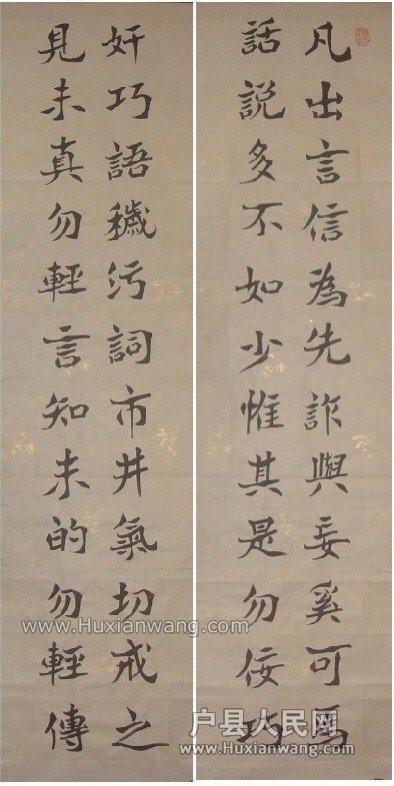 凡出言信為先詐與妄奚可焉
話說多不如少惟其是勿佞巧
奸巧語穢污詞市井氣切戒之
見未真勿輕言知未的勿輕傳
www.Huxianwang.com
户县人民网
www.Huxianwang.com